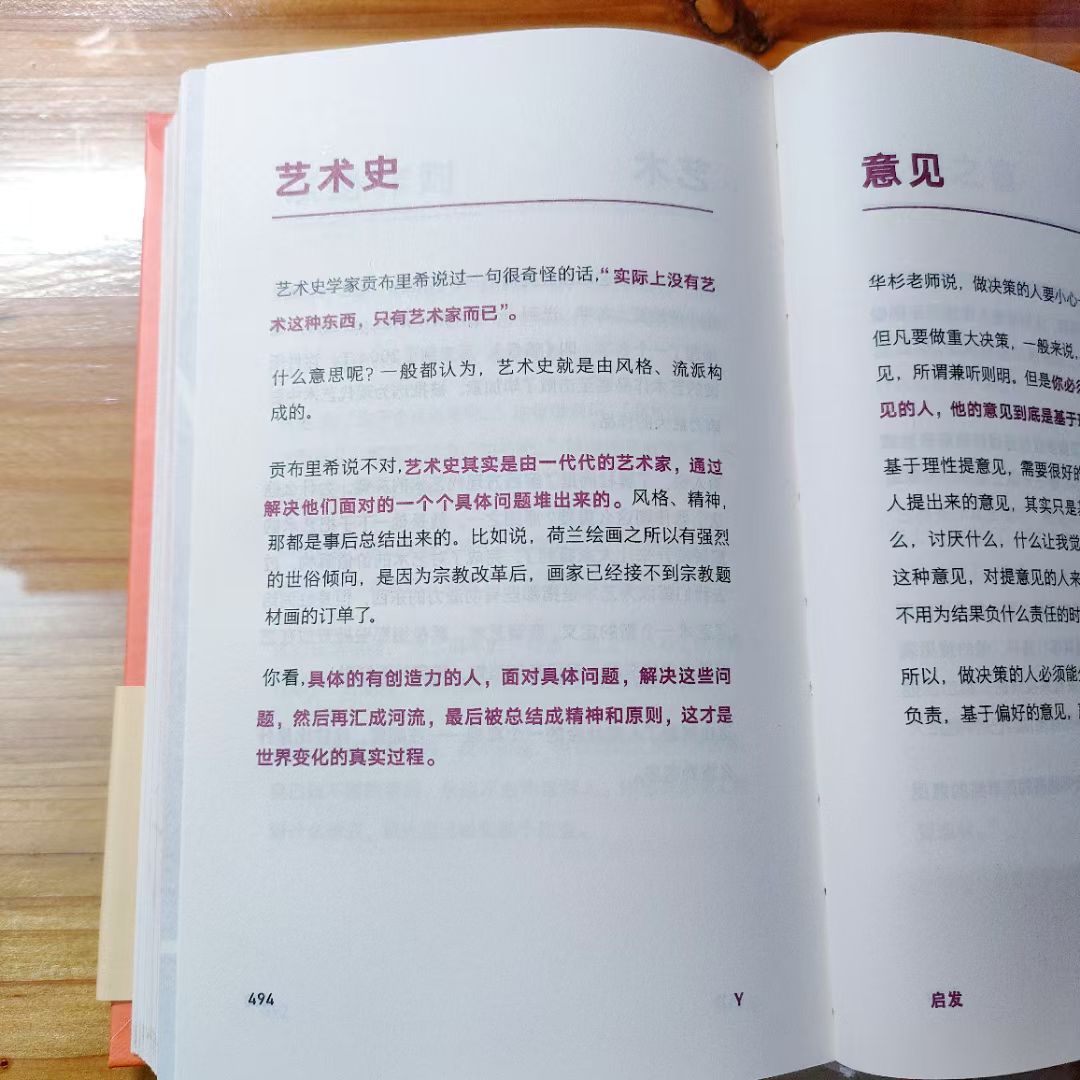 艺术史
艺术史学家贡布里希说过一句很奇怪的话，“实际上没有艺
术这种东西，只有艺术家而已”。
什么意思呢？一般都认为，艺术史就是由风格、流派构
成的。
贡布里希说不对，艺术史其实是由一代代的艺术家，通过
解决他们面对的一个个具体问题堆出来的。风格、精神，
那都是事后总结出来的。比如说，荷兰绘画之所以有强烈
的世俗倾向，是因为宗教改革后，画家已经接不到宗教题
材画的订单了。
你看，具体的有创造力的人，面对具体问题，解决这些问
题，然后再汇成河流，最后被总结成精神和原则，这才是
世界变化的真实过程。
494
Y
意见
华杉老师说，做决策的人要小心
但凡要做重大决策，一般来说，
见，所谓兼听则明。但是你必须
见的人，他的意见到底是基于
基于理性提意见，需要很好的
人提出来的意见，其实只是
么，讨厌什么，什么让我觉
这种意见，对提意见的人来
不用为结果负什么责任的时
所以，做决策的人必须能
负责，基于偏好的意见，
启发